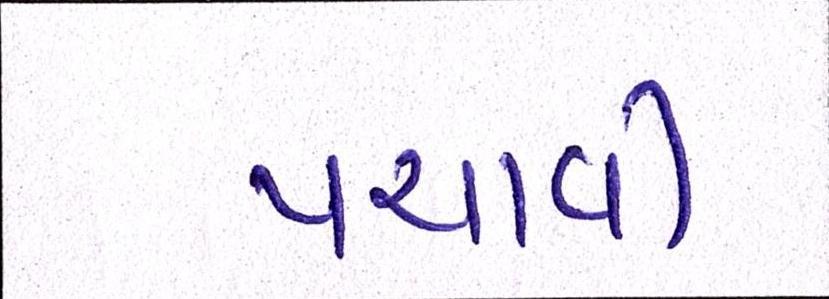 પચાવી